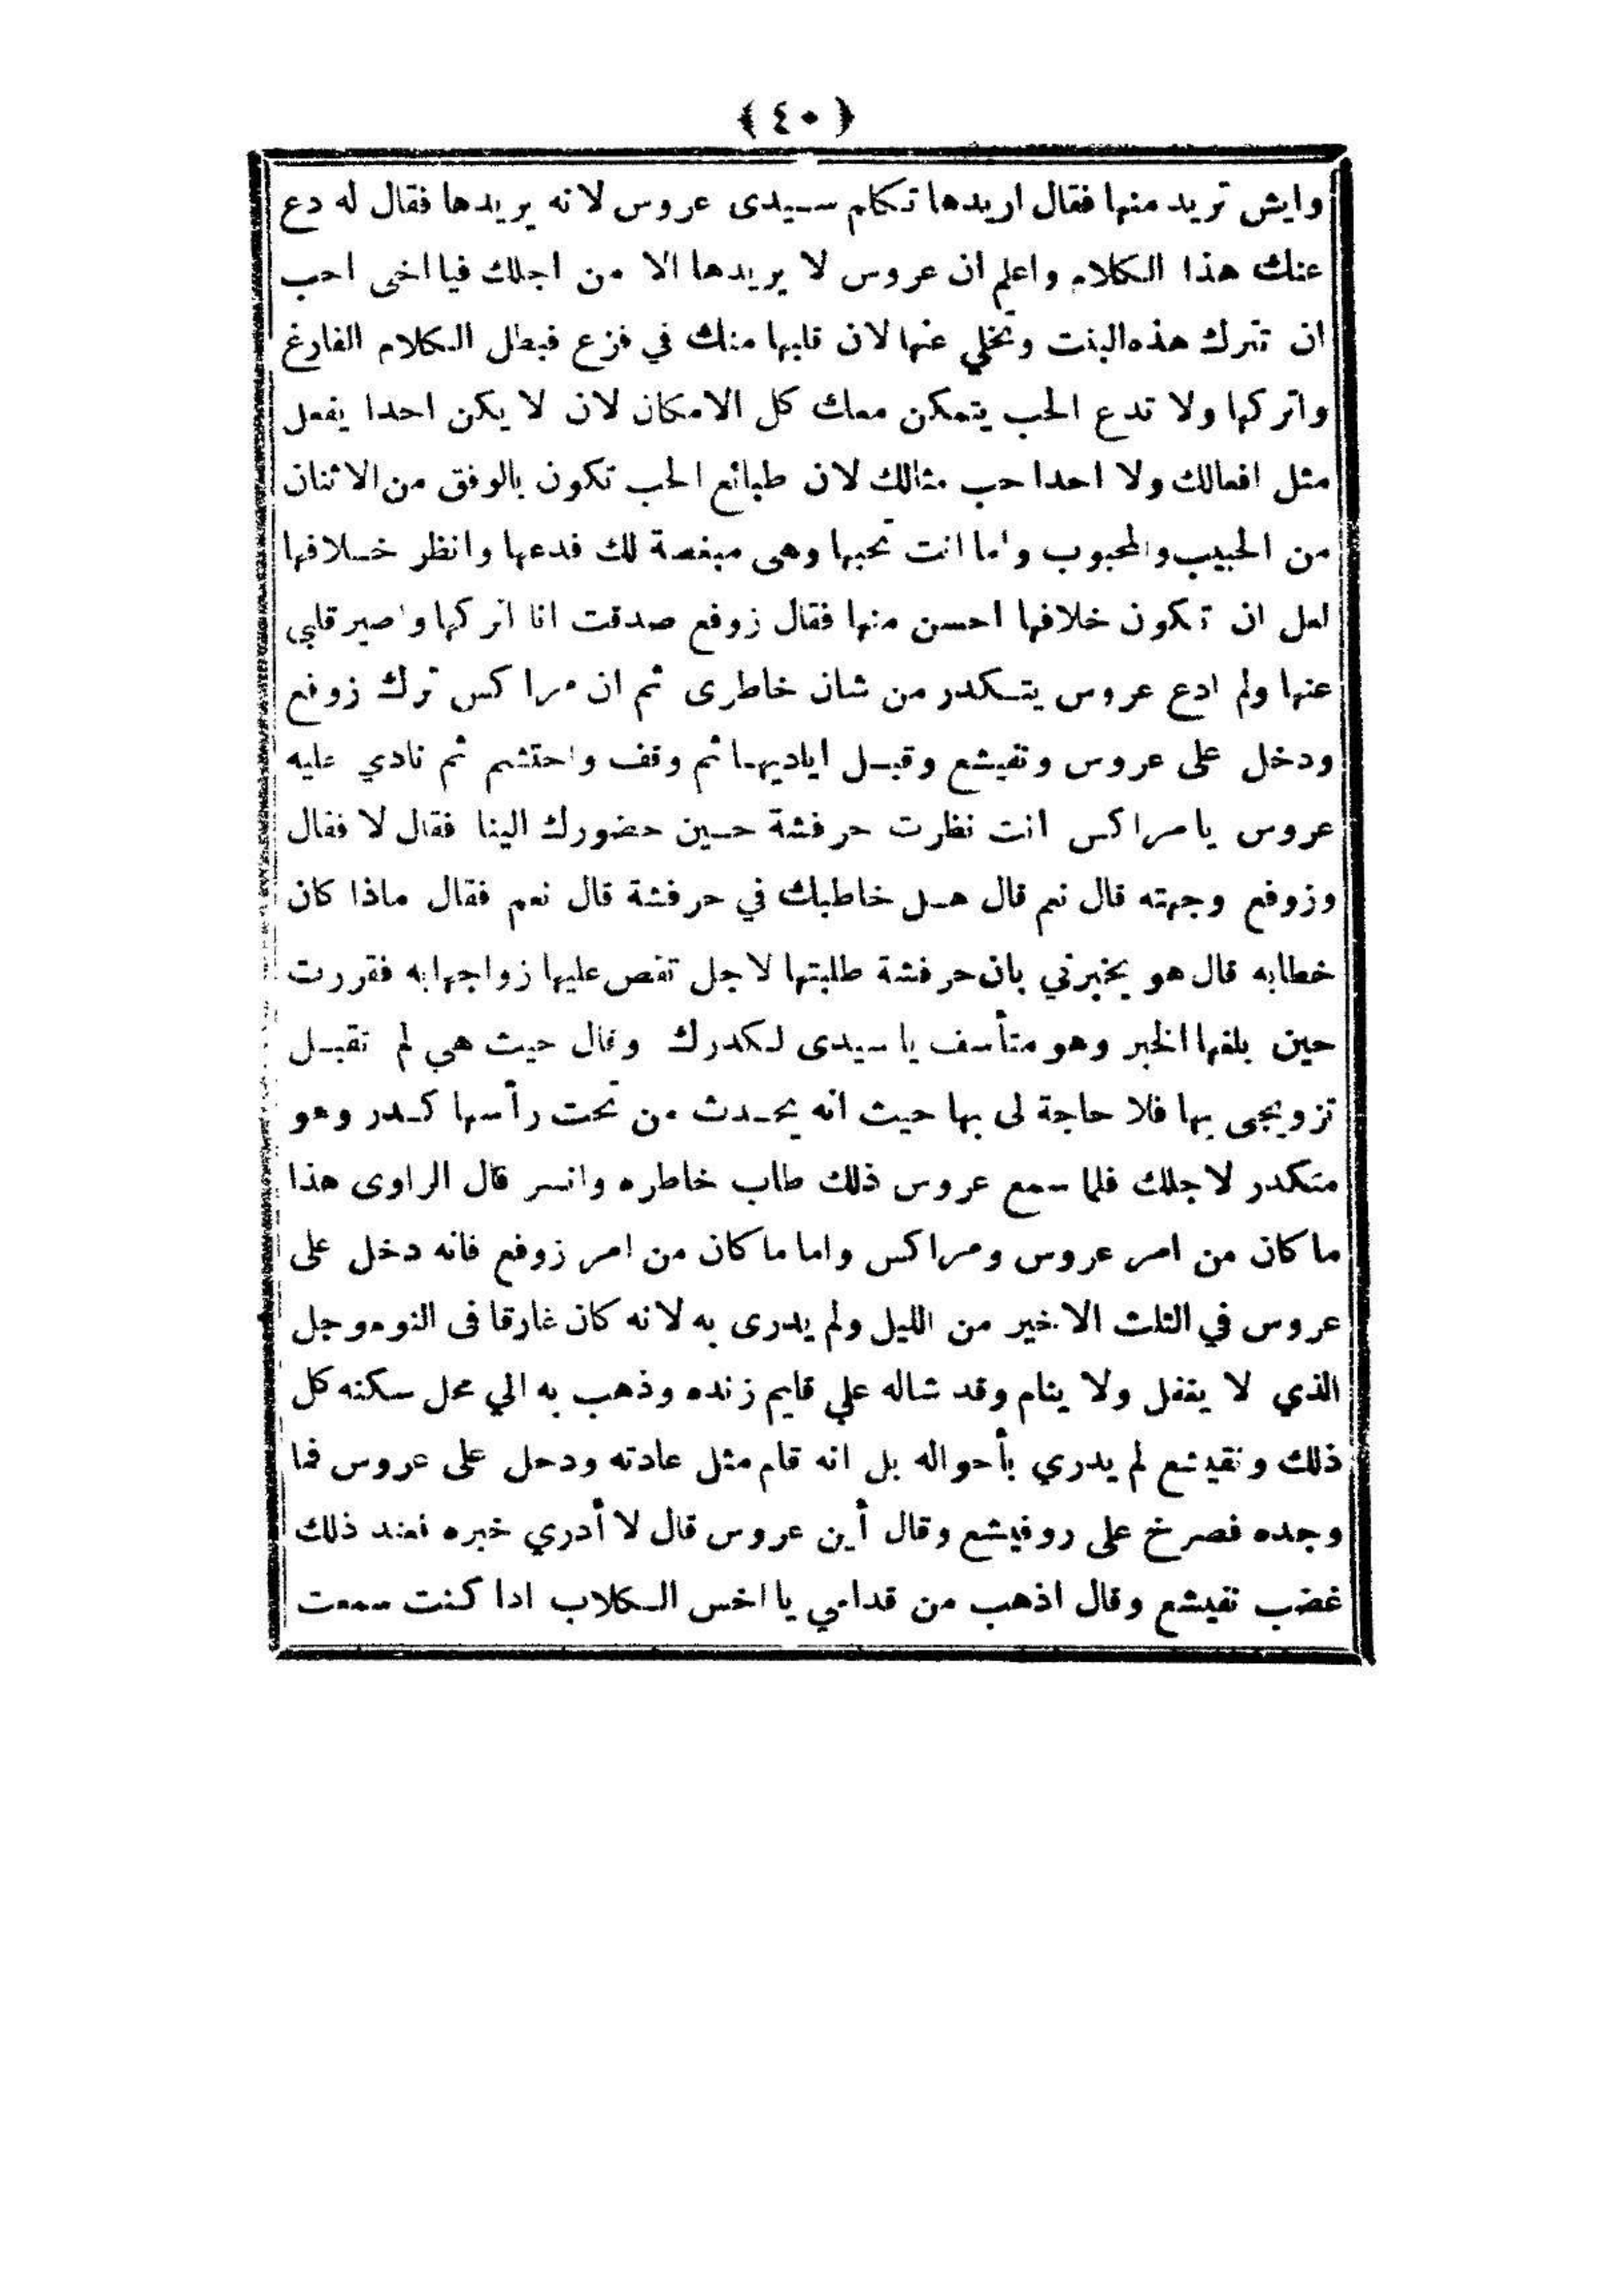 ﴿ ٤٠ ﴾
وايش تريد منها فقال اريدها تكلم سيدى عروس لانه يريدها فقال له دع
عنك هذا الكلام واعلم ان عروس لا يريدها الا من اجلك فيا اخى احب
ان تترك هذه البنت وتخلي عنها لان قلبها منك في فزع فبطل الكلام الفارغ
واتركها ولا تدع الحب يتمكن معك كل الامكان لان لا يكن احدا يفعل
مثل افعالك ولا احدا حب مثالك لان طبائع الحب تكون بالوفق من الاثنان
من الحبيب والمحبوب واما انت تحبها وهى مبغضة لك فدعها وانظر خلافها
لعل ان تكون خلافها احسن منها فقال زوفع صدقت انا اتركها واصبر قلبي
عنها ولم ادع عروس يتكدر من شان خاطرى ثم ان مراكس ترك زوفع
ودخل على عروس ونفيشع وقبل اياديهما ثم وقف واحتشم ثم نادي عليه
عروس يا مراكس انت نظرت حرفشة حين حضورك الينا فقال لا فقال
وزوفع وجهته قال نعم قال هل خاطبك في حرفشة قال نعم فقال ماذا كان
خطابه قال هو يخبرني بان حرفشة طلبتها لاجل تقص عليها زواجها به فقررت
حين بلغها الخبر وهو متأسف يا سيدى لكدرك وقال حيث هي لم تقبل
تزويجى بها فلا حاجة لى بها حيث انه يحدث من تحت رأسها كدر وهو
متكدر لاجلك فلما سمع عروس ذلك طاب خاطره وانسر قال الراوى هذا
ما كان من امر عروس ومراكس واما ما كان من امر زوفع فانه دخل على
عروس في الثلث الاخير من الليل ولم يدرى به لانه كان غارقا فى النوم وجل
الذي لا يغفل ولا ينام وقد شاله علي قايم زنده وذهب به الي محل سكنه كل
ذلك ونفيشع لم يدري بأحواله بل انه قام مثل عادته ودخل على عروس فما
وجده فصرخ على روفيشع وقال أين عروس قال لا أدري خبره فعند ذلك
غضب نفيشع وقال اذهب من قدامي يا اخس الكلاب ادا كنت سمعت